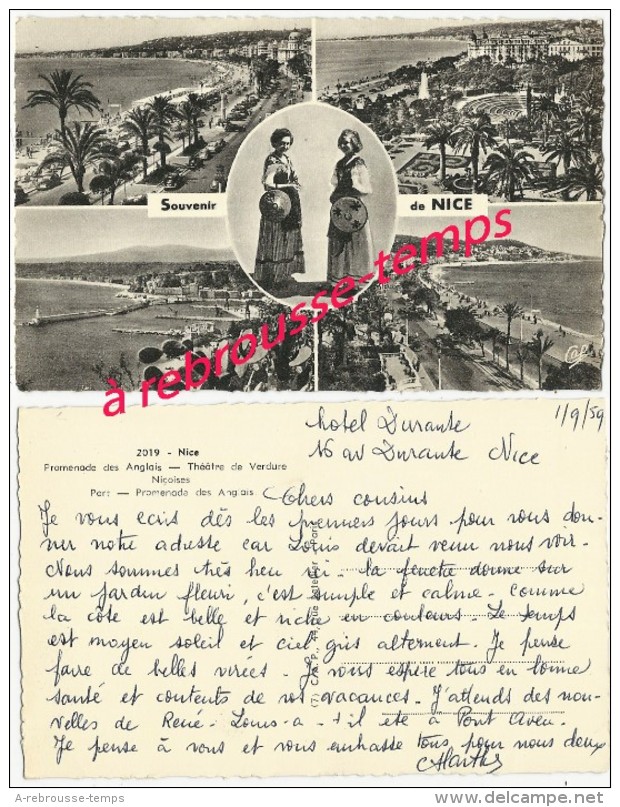 Souvenir de NICE
à rebrousse-temps
Cap
hotel Durante 1/9/59
16 av Durante Nice
2019 - Nice
Promenade des Anglais — Théâtre de Verdure
Niçoises
Port — Promenade des Anglais
Chers cousins
Je vous ecris dès les premiers jours pour vous don-
ner notre adresse car Louis devait venir nous voir.
Nous sommes très bien ici - la fenetre donne sur
un jardin fleuri, c'est simple et calme - comme
la côte est belle et riche en couleurs - Le temps
est moyen soleil et ciel gris alternent. Je pense
faire de belles virées - Je vous espère tous en bonne
santé et contents de vos vacances - J'attends des nou-
velles de René - Louis-a-t-il eté à Pont Aven.
Je pense à vous et vous embrasse tous pour nous deux
Marthe
A-rebrousse-temps
www.delcampe.net